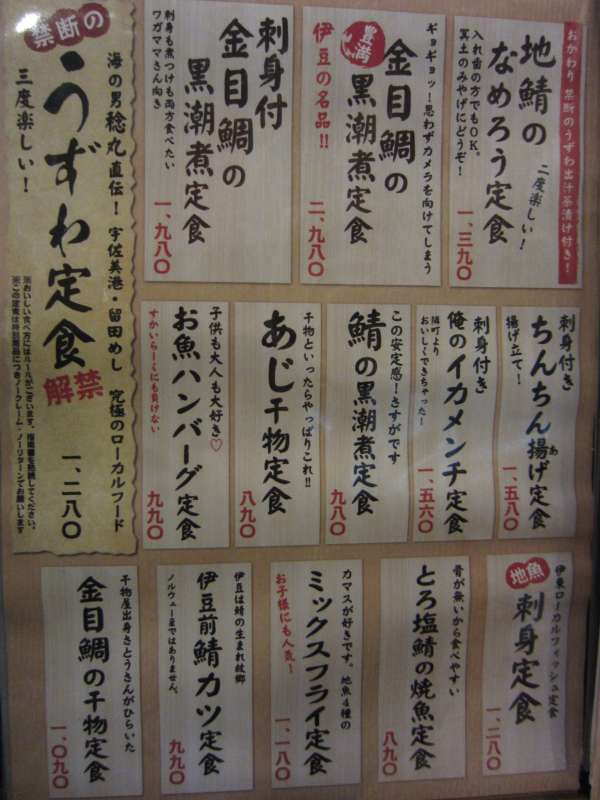 おかわり 禁断のうずわ出汁茶漬け付き！
地鯖の
なめろう定食
二度楽しい！
入れ歯の方でもOK。
冥土のみやげにどうぞ！
一、三九〇
ギョギョッ！思わずカメラを向けてしまう
豊満
金目鯛の
黒潮煮定食
伊豆の名品！！
二、九八〇
刺身付
金目鯛の
黒潮煮定食
刺身も煮つけも両方食べたい
ワガママさん向き
一、九八〇
禁断の
うずわ定食
解禁
海の男稔丸直伝！ 宇佐美港・留田めし 究極のローカルフード
三度楽しい！
一、二八〇
※おいしい食べ方にはルールがございます。指南書を熟読してください。
※この定食は特別商品につきノークレーム・ノーリターンでお願いします
刺身付き
ちんちん揚げ定食
あ
揚げ立て！
一、五八〇
刺身付き
俺のイカメンチ定食
隣町より
おいしくできちゃったー
一、五六〇
この安定感！さすがです
鯖の黒潮煮定食
九八〇
干物といったらやっぱりこれ！！
あじ干物定食
八九〇
子供も大人も大好き♡
お魚ハンバーグ定食
すかいらーくにも負けない
九九〇
伊東ローカルフィッシュ定食
地魚
刺身定食
一、二八〇
骨が無いから食べやすい
とろ塩鯖の焼魚定食
八九〇
カマスが好きです。地魚4種の
ミックスフライ定食
お子様にも人気！
一、一八〇
伊豆は鯖の生まれ故郷
伊豆前鯖カツ定食
ノルウェー産ではありません。
九九〇
干物屋出身さとうさんがひらいた
金目鯛の干物定食
一、〇九〇